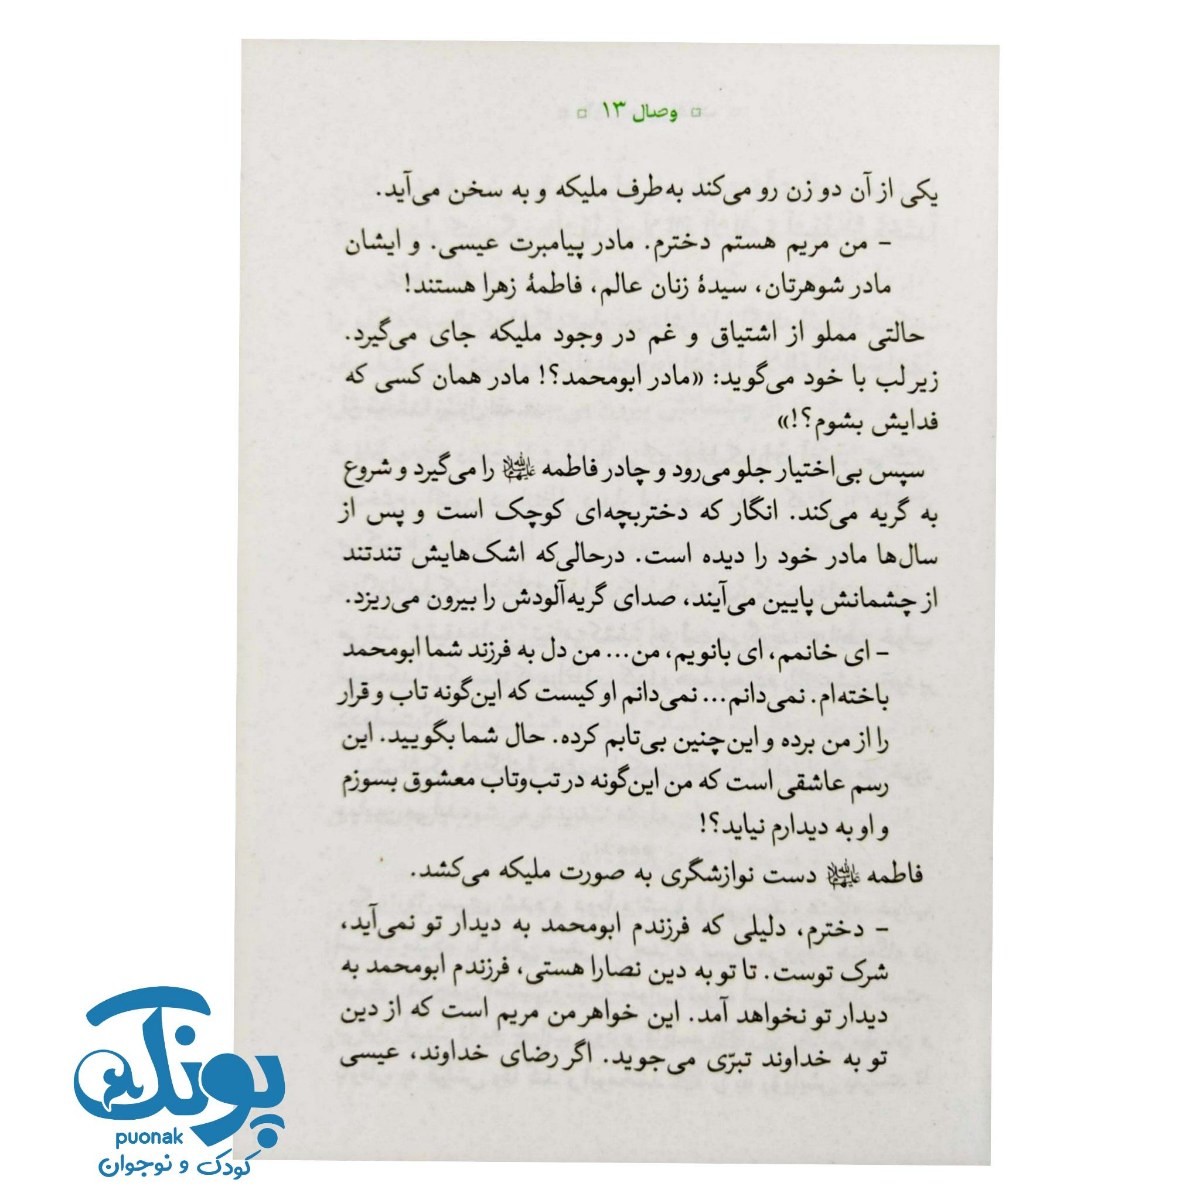 وصال ۱۳
یکی از آن دو زن رو می‌کند به‌طرف ملیکه و به سخن می‌آید.
– من مریم هستم دخترم. مادر پیامبرت عیسی. و ایشان
مادر شوهرتان، سیدهٔ زنان عالم، فاطمهٔ زهرا هستند!
حالتی مملو از اشتیاق و غم در وجود ملیکه جای می‌گیرد.
زیر لب با خود می‌گوید: «مادر ابومحمد؟! مادر همان کسی که
فدایش بشوم؟!»
سپس بی‌اختیار جلو می‌رود و چادر فاطمه علیها‌السلام را می‌گیرد و شروع
به گریه می‌کند. انگار که دختربچه‌ای کوچک است و پس از
سال‌ها مادر خود را دیده است. درحالی‌که اشک‌هایش تندتند
از چشمانش پایین می‌آیند، صدای گریه‌آلودش را بیرون می‌ریزد.
– ای خانمم، ای بانویم، من... من دل به فرزند شما ابومحمد
باخته‌ام. نمی‌دانم... نمی‌دانم او کیست که این‌گونه تاب و قرار
را از من برده و این‌چنین بی‌تابم کرده. حال شما بگویید. این
رسم عاشقی است که من این‌گونه در تب‌وتاب معشوق بسوزم
و او به دیدارم نیاید؟!
فاطمه علیها‌السلام دست نوازشگری به صورت ملیکه می‌کشد.
– دخترم، دلیلی که فرزندم ابومحمد به دیدار تو نمی‌آید،
شرک توست. تا تو به دین نصارا هستی، فرزندم ابومحمد به
دیدار تو نخواهد آمد. این خواهر من مریم است که از دین
تو به خداوند تبرّی می‌جوید. اگر رضای خداوند، عیسی
پونک
puonak
کودک و نوجوان